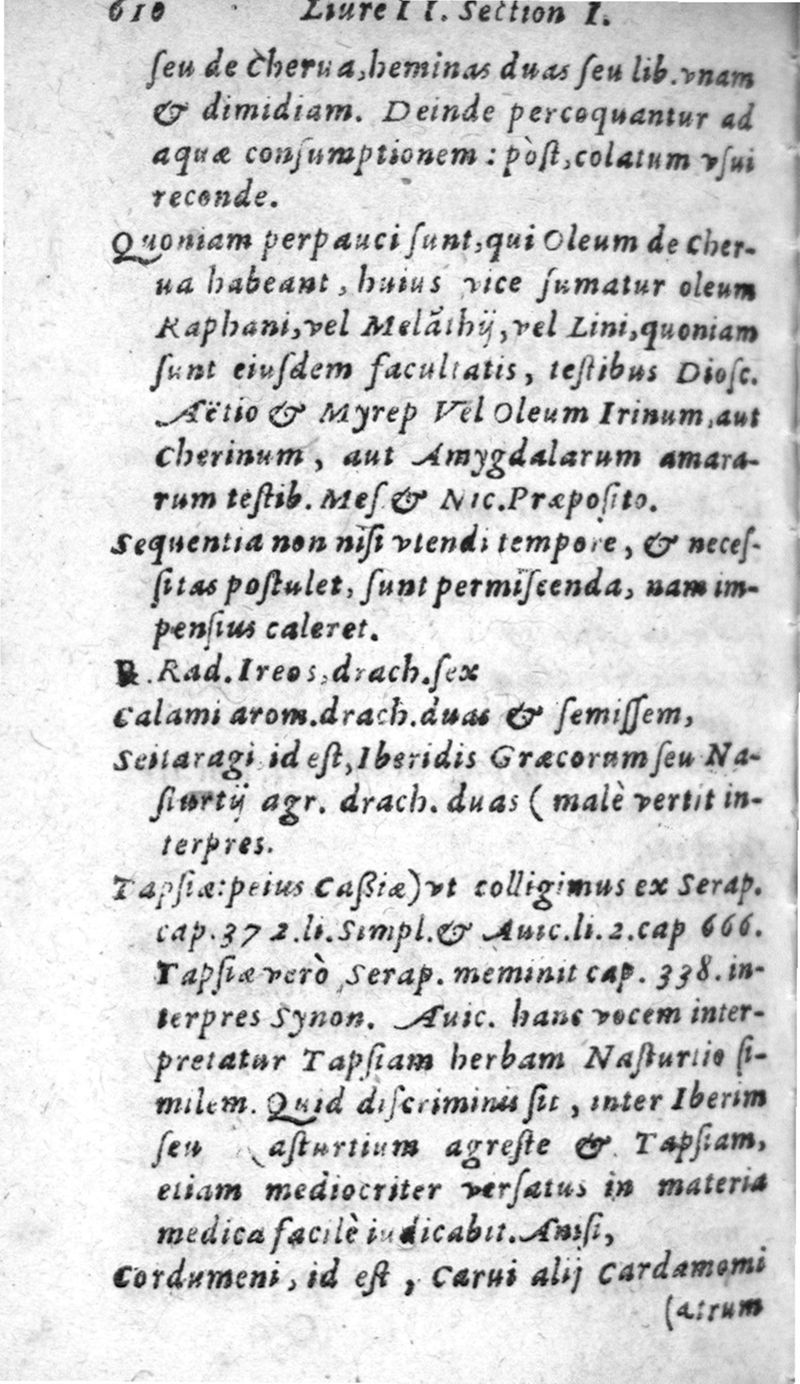 610 Liure II. Section I.
ſeu de Cherua, heminas duas ſeu lib. vnam
& dimidiam. Deinde percoquantur ad
aquæ conſumptionem : pòſt, colatum vſui
reconde.
Quoniam perpauci ſunt, qui Oleum de Cher-
ua habeant, huius vice ſumatur oleum
Raphani, vel Melāthij, vel Lini, quoniam
ſunt eiuſdem facultatis, teſtibus Dioſc.
Aëtio & Myrep Vel Oleum Irinum, aut
Cherinum, aut Amygdalarum amara-
rum teſtib. Meſ & Nic. Præpoſito.
Sequentia non niſi vtendi tempore, & neceſ-
ſitas poſtulet, ſunt permiſcenda, nam im-
penſius caleret.
℞. Rad. Ireos, drach. ſex
Calami arom. drach. duas & ſemiſſem,
Seitaragi id eſt, Iberidis Græcorum ſeu Na-
ſturtij agr. drach. duas ( malè vertit in-
terpres.
Tapſiæ: peius Caſſiæ) vt colligimus ex Serap.
cap. 372. li. Simpl. & Auic. li. 2. cap 666.
Tapſiæ verò Serap. meminit cap. 338. in-
terpres Synon. Auic. hanc vocem inter-
pretatur Tapſiam herbam Naſturtio ſi-
milem. Quid diſcriminis ſit, inter Iberim
ſeu aſturtium agreſte & Tapſiam,
etiam mediocriter verſatus in materia
medica facilè iudicabit. Aniſi,
Cordumeni, id eſt, Carui alij Cardamomi
(atrum